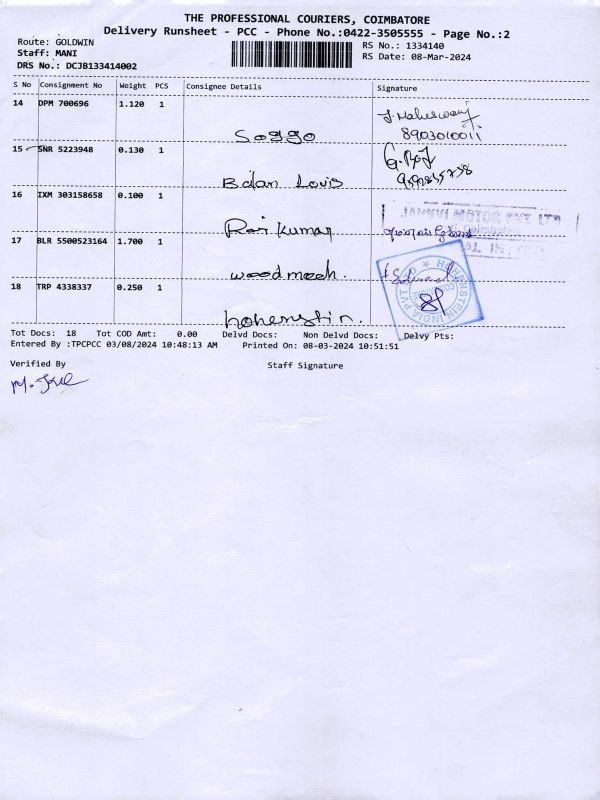 THE PROFESSIONAL COURIERS, COIMBATORE
Delivery Runsheet - PCC - Phone No.:0422-3505555 - Page No.:2
Route: GOLDWIN
Staff: MANI
DRS No.: DCJB133414002
RS No.: 1334140
RS Date: 08-Mar-2024
S No Consignment No Weight PCS Consignee Details Signature
14 DPM 700696 1.120 1
Soggo
8903010011
15 SNR 5223948 0.130 1
Louis
16 IXM 303158658 0.100 1
Raj Kumar
JANNVI MOTOR PVT LTD
17 BLR 5500523164 1.700 1
woodmech.
18 TRP 4338337 0.250 1
hohenstin.
HOHENSTEIN INDIA PVT
Tot Docs: 18 Tot COD Amt: 0.00 Delvd Docs: Non Delvd Docs: Delvy Pts:
Entered By :TPCPCC 03/08/2024 10:48:13 AM Printed On: 08-03-2024 10:51:51
Verified By Staff Signature